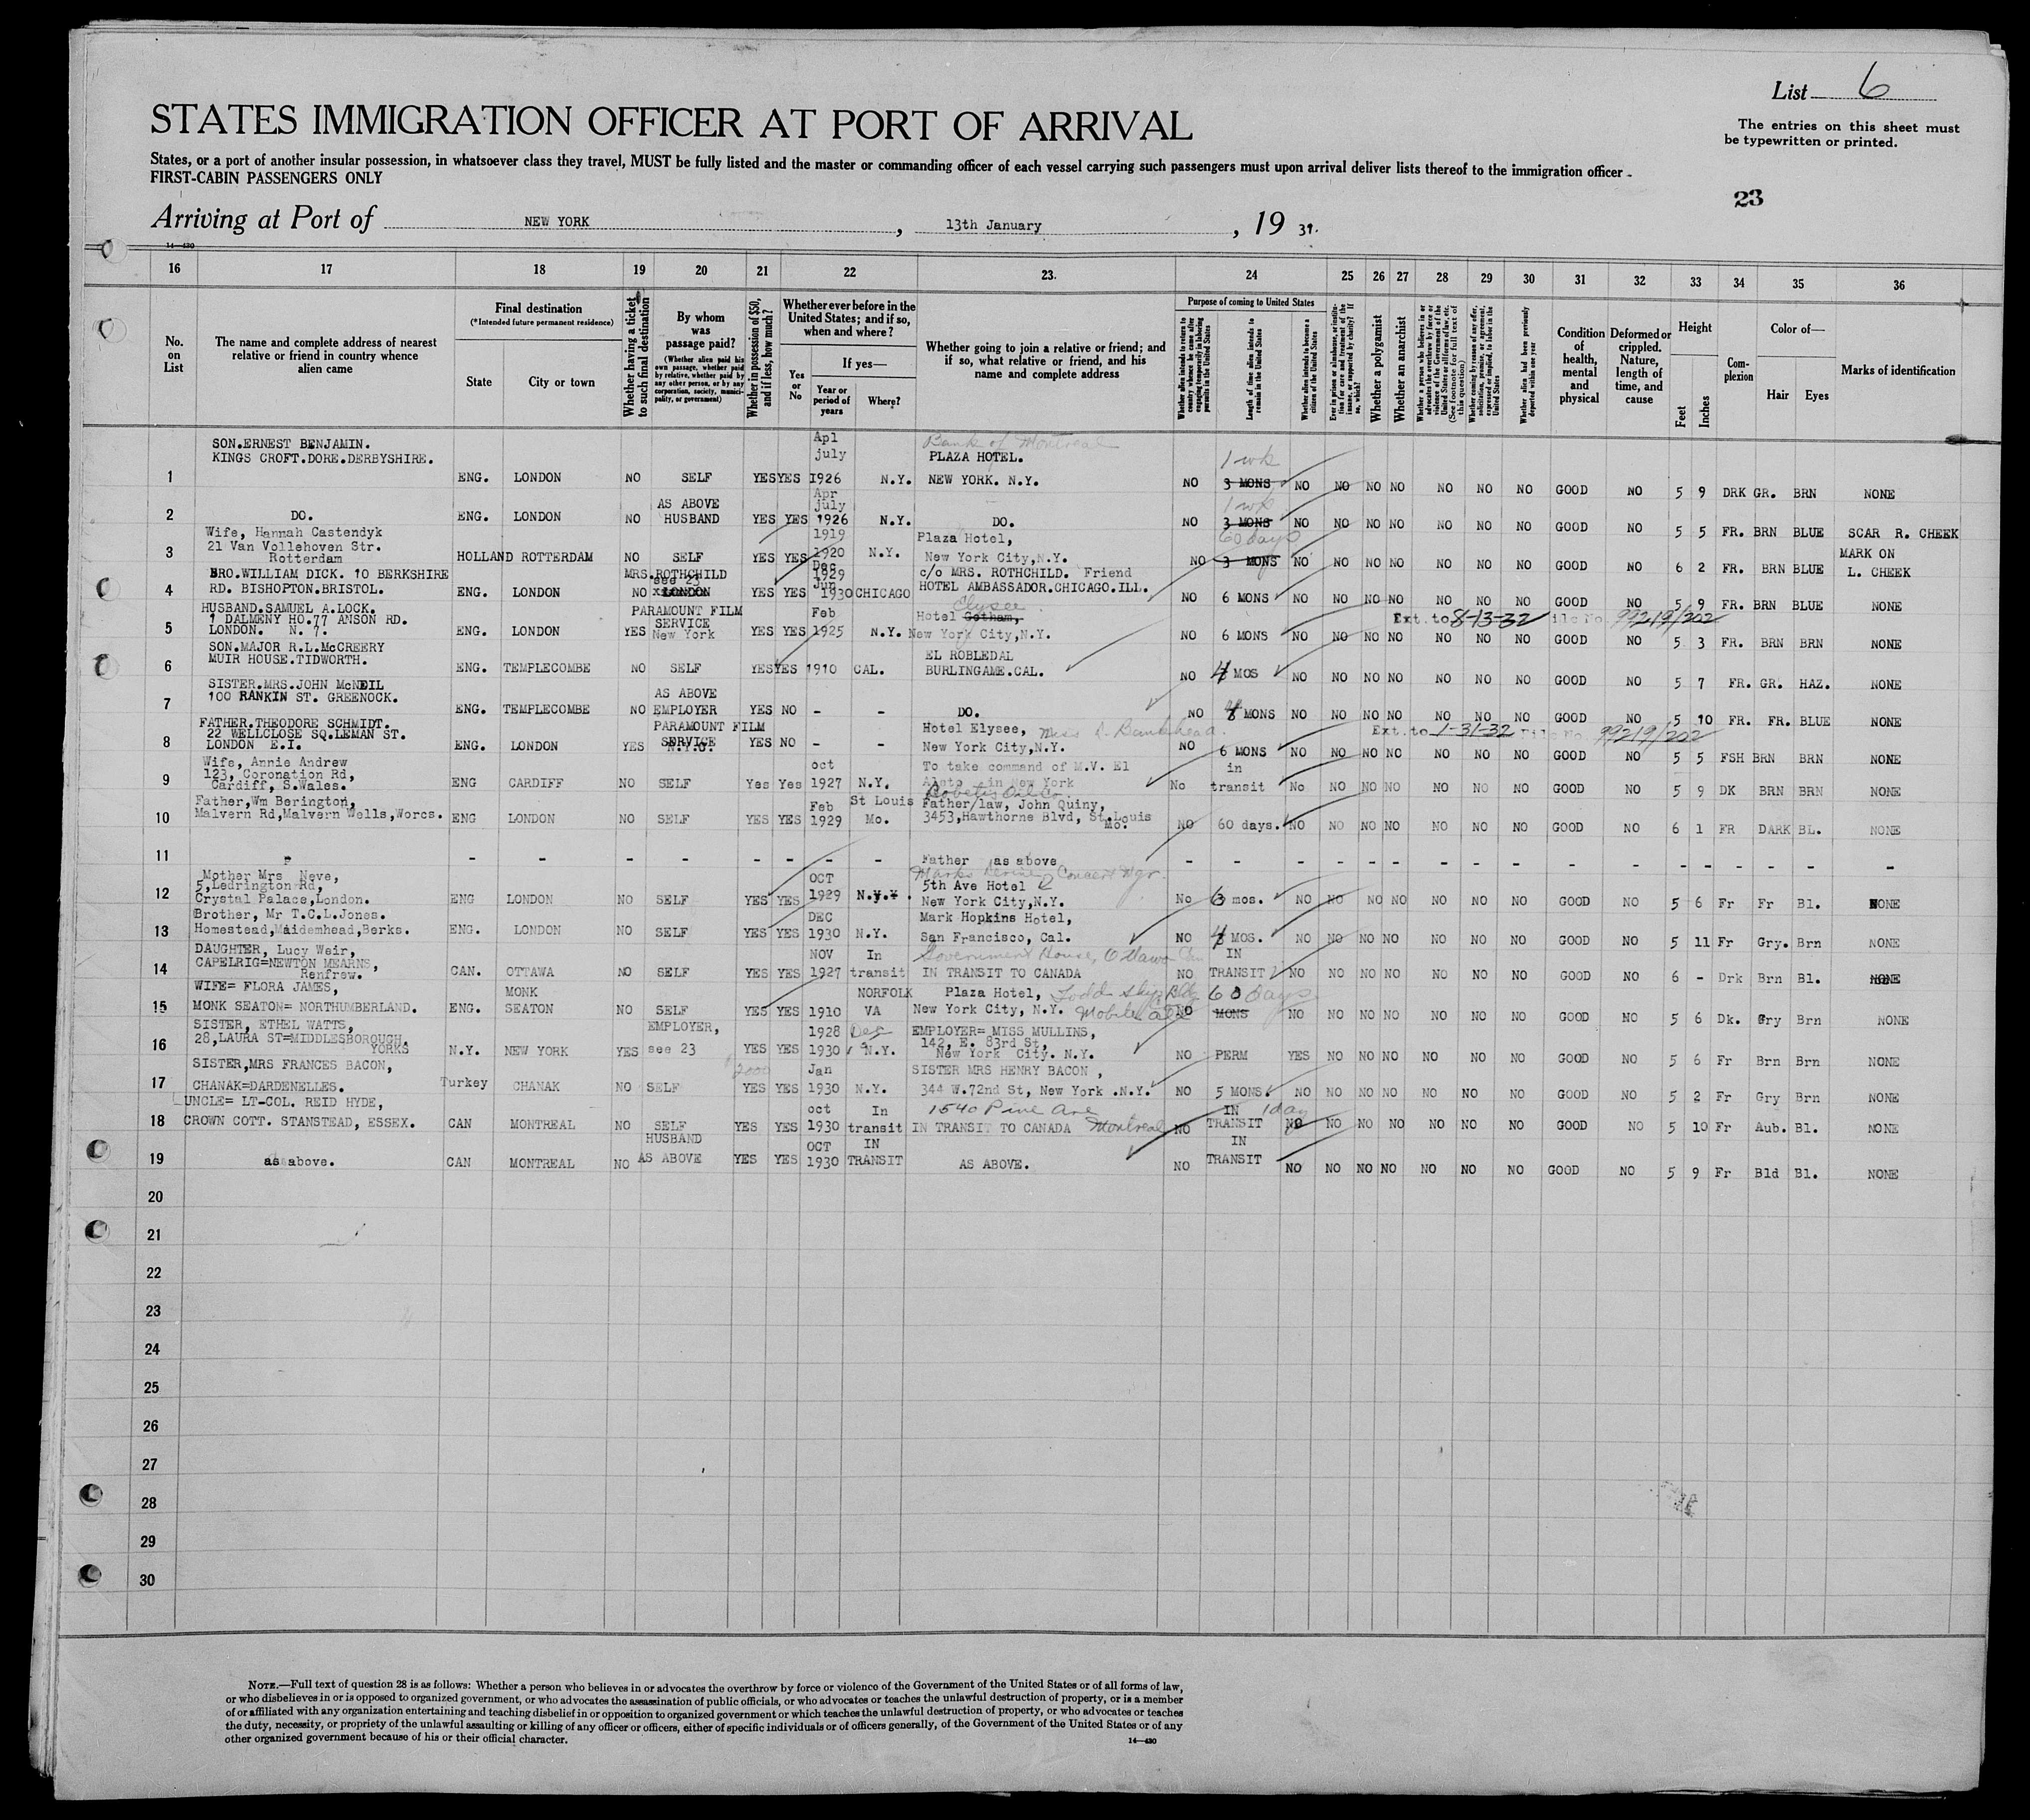 List 6
STATES IMMIGRATION OFFICER AT PORT OF ARRIVAL
The entries on this sheet must
be typewritten or printed.
States, or a port of another insular possession, in whatsoever class they travel, MUST be fully listed and the master or commanding officer of each vessel carrying such passengers must upon arrival deliver lists thereof to the immigration officer
FIRST-CABIN PASSENGERS ONLY
23
Arriving at Port of NEW YORK, 13th January, 19 31.
14—430
16 17 18 19 20 21 22 23. 24 25 26 27 28 29 30 31 32 33 34 35 36
No. on List
The name and complete address of nearest relative or friend in country whence alien came
Final destination
(*Intended future permanent residence)
State
City or town
Whether having ticket to such final destination
By whom was passage paid?
(Whether alien paid his own passage, whether paid by relative, whether paid by any other person, or by any corporation, society, municipality, or government)
Whether in possession of $50, and if less, how much?
Whether ever before in the United States; and if so, when and where?
Yes or No
If yes—
Year or period of years
Where?
Whether going to join a relative or friend; and if so, what relative or friend, and his name and complete address
Purpose of coming to United States
Whether alien intends to return to country whence he came after engaging temporarily in laboring pursuits in the United States
Length of time alien intends to remain in the United States
Whether alien intends to become a citizen of the United States
Ever in prison or almshouse, or institution for care and treatment of the insane, or supported by charity? If so, which?
Whether a polygamist
Whether an anarchist
Whether a person who believes in or advocates the overthrow by force or violence of the Government of the United States or all forms of law, etc. (See footnote for full text of this question)
Whether coming by reason of any offer, solicitation, promise, or agreement, expressed or implied, to labor in the United States
Whether alien had been previously deported within one year
Condition of health, mental and physical
Deformed or crippled. Nature, length of time, and cause
Height
Feet
Inches
Complexion
Color of—
Hair
Eyes
Marks of identification
SON.ERNEST BENJAMIN. Apl Bank of Montreal
KINGS CROFT.DORE.DERBYSHIRE. july PLAZA HOTEL. 1 wk
1 ENG. LONDON NO SELF YES YES 1926 N.Y. NEW YORK. N.Y. NO 3 MONS NO NO NO NO NO NO NO GOOD NO 5 9 DRK GR. BRN NONE
AS ABOVE Apr july 1 wk
2 DO. ENG. LONDON NO HUSBAND YES YES 1926 N.Y. DO. NO 3 MONS NO NO NO NO NO NO NO GOOD NO 5 5 FR. BRN BLUE SCAR R. CHEEK
Wife, Hannah Castendyk 1919 Plaza Hotel, 60 days
21 Van Vollehoven Str.
3 Rotterdam HOLLAND ROTTERDAM NO SELF YES YES 1920 N.Y. New York City,N.Y. NO 3 MONS NO NO NO NO NO NO NO GOOD NO 6 2 FR. BRN BLUE MARK ON L. CHEEK
BRO.WILLIAM DICK. 10 BERKSHIRE MRS.ROTHCHILD Dec 1929 c/o MRS. ROTHCHILD. Friend
see 23 Jun
4 RD. BISHOPTON.BRISTOL. ENG. LONDON NO LONDON YES YES 1930 CHICAGO HOTEL AMBASSADOR.CHICAGO.ILL. NO 6 MONS NO NO NO NO NO NO NO GOOD NO 5 9 FR. BRN BLUE NONE
HUSBAND.SAMUEL A.LOCK. PARAMOUNT FILM Feb Elysee
1 DALMENY HO.77 ANSON RD. SERVICE Hotel Gotham, Ext. to 8-13-32 File No. 99219/202
5 LONDON. N. 7. ENG. LONDON YES New York YES YES 1925 N.Y. New York City,N.Y. NO 6 MONS NO NO NO NO NO NO NO GOOD NO 5 3 FR. BRN BRN NONE
SON.MAJOR R.L.McCREERY EL ROBLEDAL
6 MUIR HOUSE.TIDWORTH. ENG. TEMPLECOMBE NO SELF YES YES 1910 CAL. BURLINGAME.CAL. NO 4 MOS NO NO NO NO NO NO NO GOOD NO 5 7 FR. GR. HAZ. NONE
SISTER.MRS.JOHN McNEIL AS ABOVE
7 100 RANKIN ST. GREENOCK. ENG. TEMPLECOMBE NO EMPLOYER YES NO - - DO. NO 4 MONS NO NO NO NO NO NO NO GOOD NO 5 10 FR. FR. BLUE NONE
FATHER.THEODORE SCHMIDT. PARAMOUNT FILM Hotel Elysee, Miss Bankhead. Ext. to 1-31-32 File No. 99219/202
22 WELLCLOSE SQ.LEMAN ST. SERVICE
8 LONDON E.I. ENG. LONDON YES N.Y.C. YES NO - - New York City,N.Y. NO 6 MONS NO NO NO NO NO NO NO GOOD NO 5 5 FSH BRN BRN NONE
Wife, Annie Andrew oct To take command of M.V. El in
9 123, Coronation Rd, ENG CARDIFF NO SELF Yes Yes 1927 N.Y. Alato in New York No transit No NO NO NO NO NO NO GOOD NO 5 9 DK BRN BRN NONE
Cardiff, S.Wales. Oil Co.
Father,Wm Berington, Feb St Louis Father/law, John Quiny,
10 Malvern Rd,Malvern Wells,Worcs. ENG LONDON NO SELF YES YES 1929 Mo. 3453,Hawthorne Blvd, St.Louis Mo. NO 60 days. NO NO NO NO NO NO NO GOOD NO 6 1 FR DARK BL. NONE
11 - - - - - - - - Father as above - - - - - - - - - - - - - - - - -
Mother Mrs Neve, OCT Concert Mgr.
5,Ledrington Rd, 5th Ave Hotel
12 Crystal Palace,London. ENG LONDON NO SELF YES YES 1929 N.Y. New York City,N.Y. No 6 mos. NO NO NO NO NO NO NO GOOD NO 5 6 Fr Fr Bl. NONE
Brother, Mr T.C.L.Jones. DEC Mark Hopkins Hotel,
13 Homestead,Maidemhead,Berks. ENG. LONDON NO SELF YES YES 1930 N.Y. San Francisco, Cal. NO 4 MOS. NO NO NO NO NO NO NO GOOD NO 5 11 Fr Gry. Brn NONE
DAUGHTER, Lucy Weir, NOV In Government House, Ottawa Can IN
14 CAPELRIG=NEWTON MEARNS, CAN. OTTAWA NO SELF YES YES 1927 transit IN TRANSIT TO CANADA NO TRANSIT NO NO NO NO NO NO NO GOOD NO 6 - Drk Brn Bl. NONE
Renfrew.
WIFE= FLORA JAMES, MONK NORFOLK Plaza Hotel, Todd Ship Bldg 60 days
15 MONK SEATON= NORTHUMBERLAND. ENG. SEATON NO SELF YES YES 1910 VA New York City, N.Y. Mobile Ala NO MONS NO NO NO NO NO NO NO GOOD NO 5 6 Dk. Gry Brn NONE
SISTER, ETHEL WATTS, EMPLOYER, 1928 Dec EMPLOYER= MISS MULLINS,
28,LAURA ST=MIDDLESBOROUGH. 142, E. 83rd St,
16 YORKS N.Y. NEW YORK YES see 23 YES YES 1930 N.Y. New York City. N.Y. NO PERM YES NO NO NO NO NO NO GOOD NO 5 6 Fr Brn Brn NONE
SISTER,MRS FRANCES BACON, 2000 Jan SISTER MRS HENRY BACON ,
17 CHANAK=DARDENELLES. Turkey CHANAK NO SELF YES YES 1930 N.Y. 344 W.72nd St, New York .N.Y. NO 5 MONS. NO NO NO NO NO NO NO GOOD NO 5 2 Fr Gry Brn NONE
UNCLE= LT-COL. REID HYDE, oct In 1540 Pine Ave IN 1 day
18 CROWN COTT. STANSTEAD, ESSEX. CAN MONTREAL NO SELF YES YES 1930 transit IN TRANSIT TO CANADA Montreal NO TRANSIT NO NO NO NO NO NO NO GOOD NO 5 10 Fr Aub. Bl. NONE
HUSBAND OCT IN IN
19 as above. CAN MONTREAL NO AS ABOVE YES YES 1930 TRANSIT AS ABOVE. NO TRANSIT NO NO NO NO NO NO NO GOOD NO 5 9 Fr Bld Bl. NONE
20
21
22
23
24
25
26
27
28
29
30
NOTE.—Full text of question 28 is as follows: Whether a person who believes in or advocates the overthrow by force or violence of the Government of the United States or of all forms of law,
or who disbelieves in or is opposed to organized government, or who advocates the assassination of public officials, or who advocates or teaches the unlawful destruction of property, or is a member
of or affiliated with any organization entertaining and teaching disbelief in or opposition to organized government or which teaches the unlawful destruction of property, or who advocates or teaches
the duty, necessity, or propriety of the unlawful assaulting or killing of any officer or officers, either of specific individuals or of officers generally, of the Government of the United States or of any
other organized government because of his or their official character.
14—430